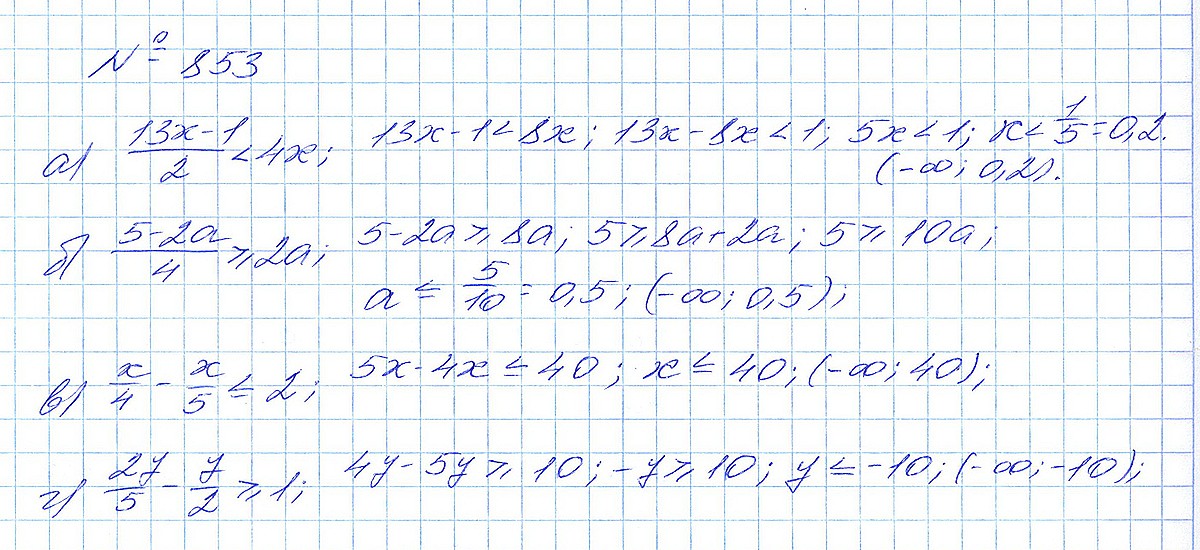 № 853
а) (13x-1)/2 < 4x; 13x-1<8x; 13x-8x<1; 5x<1; x<1/5=0,2.
(-∞; 0,2).
б) (5-2a)/4 ⩾ 2a; 5-2a⩾8a; 5⩾8a+2a; 5⩾10a;
a ≤ 5/10 = 0,5; (-∞; 0,5);
в) x/4 - x/5 ≤ 2; 5x-4x ≤ 40; x ≤ 40; (-∞; 40);
г) 2y/5 - y/2 ⩾ 1; 4y-5y ⩾ 10; -y⩾10; y ≤ -10; (-∞; -10);